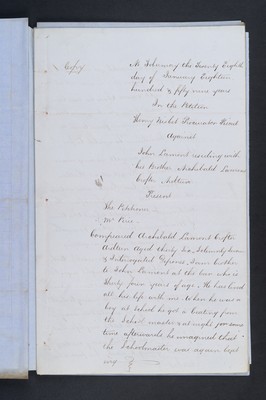 Copy
At Tobermory the Twenty Eighth
day of January Eighteen
hundred & fifty nine years
In the Petition
Henry Nisbet Poor
Against
John Lamont residing with
his Brother Archibald Lamont
Crofter
Present
The Petitioner
Mr
Compeared Archibald Lamont Crofter
Aged thirty two, Solemnly sworn
& Interrogated Depones, I am brother
to John Lamont at the bar who is
thirty four years of age. He has lived
all his life with me. When he was a
boy at School he got a beating from
the School master and might for some
time afterwards he imagined that
the Schoolmaster was again